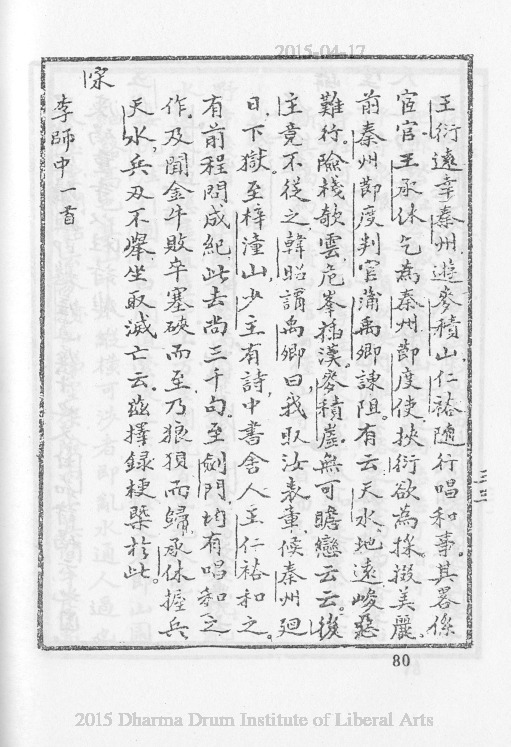 2015-04-17
王衍遠幸秦州遊麥積山仁裕隨行唱和事其畧係
宦官王承休乞為秦州節度使挾衍欲為採掇美麗
前秦州節度判官蒲禹卿諫阻有云天水地遠峻惡
難行險棧欹雲危峯插漢麥積崖無可瞻戀云云後
主竟不從之韓昭謂禹卿曰我取汝表章候秦州廻
日下獄至梓潼山少主有詩中書舍人王仁裕和之
有前程問成紀此去尚三千句至劍門均有唱和之
作及聞金牛敗卒塞硤而至乃狼狽而歸承休握兵
天水兵刃不舉坐取滅亡云茲擇錄梗槩於此
宋
李師中一首
三二
80
2015 Dharma Drum Institute of Liberal Arts